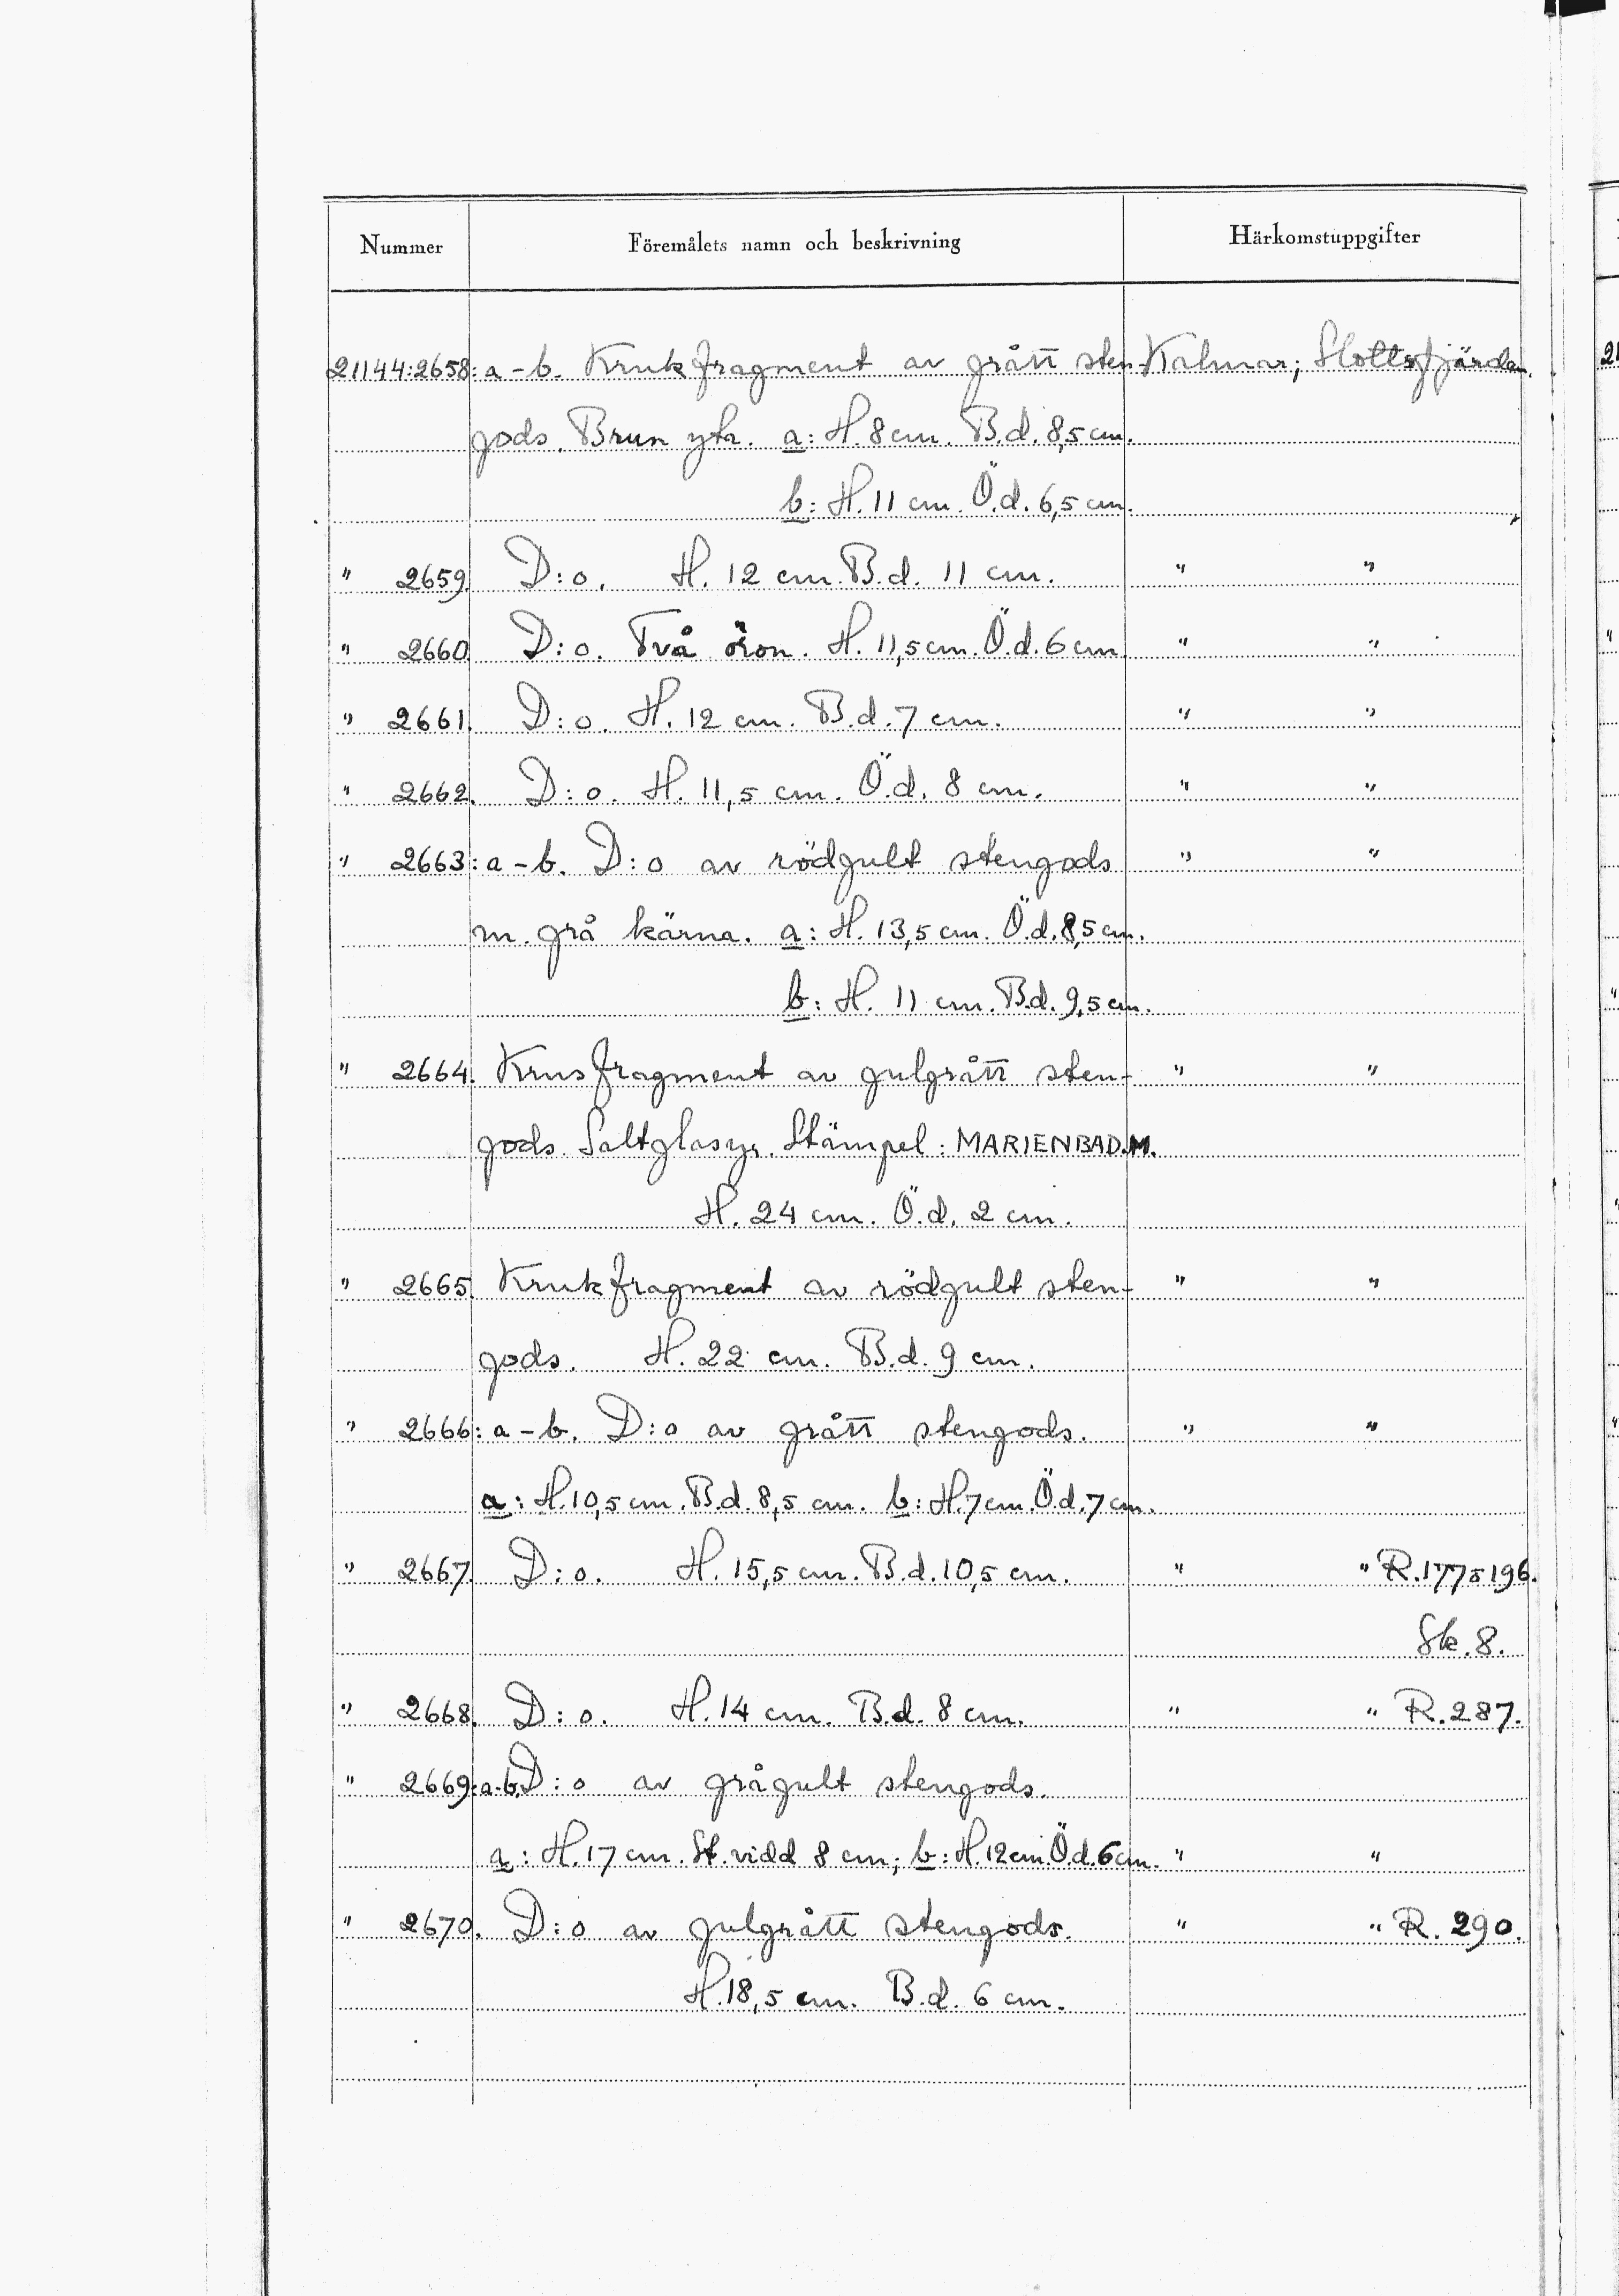 Nummer Föremålets namn och beskrivning Härkomstuppgifter
21144:2658:a-b. Krukfragment av grått sten- Kalmar; Slottsfjärden.
gods. Brun yta. a: H. 8 cm. B.d. 8,5 cm.
b: H. 11 cm. Ö.d. 6,5 cm.
" 2659. D:o. H. 12 cm. B.d. 11 cm. " "
" 2660. D:o. Två öron. H. 11,5 cm. Ö.d. 6 cm. " "
" 2661. D:o. H. 12 cm. B.d. 7 cm. " "
" 2662. D:o. H. 11,5 cm. Ö.d. 8 cm. " "
" 2663:a-b. D:o av rödgult stengods " "
m. grå kärna. a: H. 13,5 cm. Ö.d. 8,5 cm.
b: H. 11 cm. B.d. 9,5 cm.
" 2664. Krusfragment av gulgrått sten- " "
gods. Saltglasyr. Stämpel: MARIENBAD.M.
H. 24 cm. Ö.d. 2 cm.
" 2665. Krukfragment av rödgult sten- " "
gods. H. 22 cm. B.d. 9 cm.
" 2666:a-b. D:o av grått stengods. " "
a: H. 10,5 cm. B.d. 8,5 cm. b: H. 7 cm. Ö.d. 7 cm.
" 2667. D:o. H. 15,5 cm. B.d. 10,5 cm. " " R.177 196.
Sk. 8.
" 2668. D:o. H. 14 cm. B.d. 8 cm. " " R. 287.
" 2669:a-b. D:o av grågult stengods.
a: H. 17 cm. St. vidd 8 cm; b: H. 12 cm. Ö.d. 6 cm. " "
" 2670. D:o av gulgrått stengods. " " R. 290.
H. 18,5 cm. B.d. 6 cm.